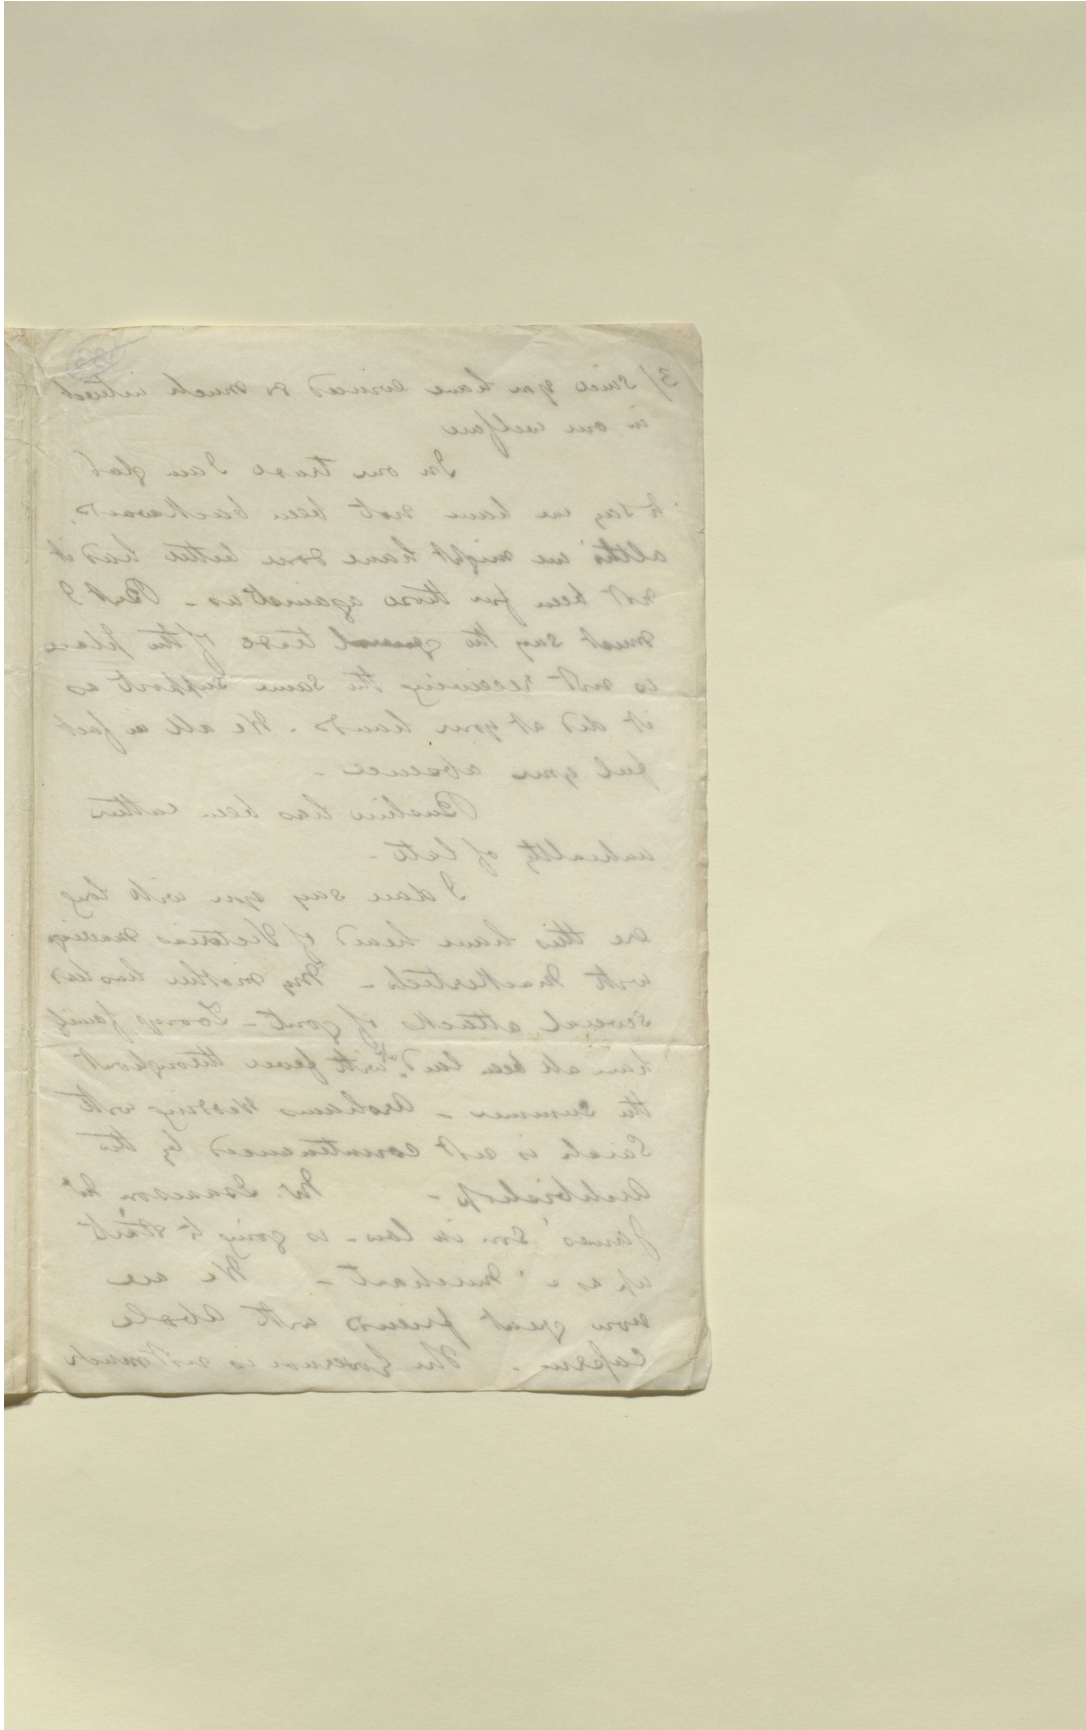 3/ since you have evinced so much interest
in our welfare
In our trade I am glad
to say we have not been backward.
altho' we might have done better had it
not been for those against us - But I
must say the general trade of the place
is not receiving the same support as
it did at your hands. We all in fact
feel your absence -
Bushire has been rather
unhealthy of late -
I dare say you will long
ere this have heard of Victorias marriage
with Mackertich - My mother has had
several attacks of gout - family
have all been laid up with fever throughout
the summer - wedding with
Sarah is not countenanced by the
Archbishop - Mr. Isaacson
James' Son in law - is going to start
up as a merchant - We are
now great friends with
The Governor is not much